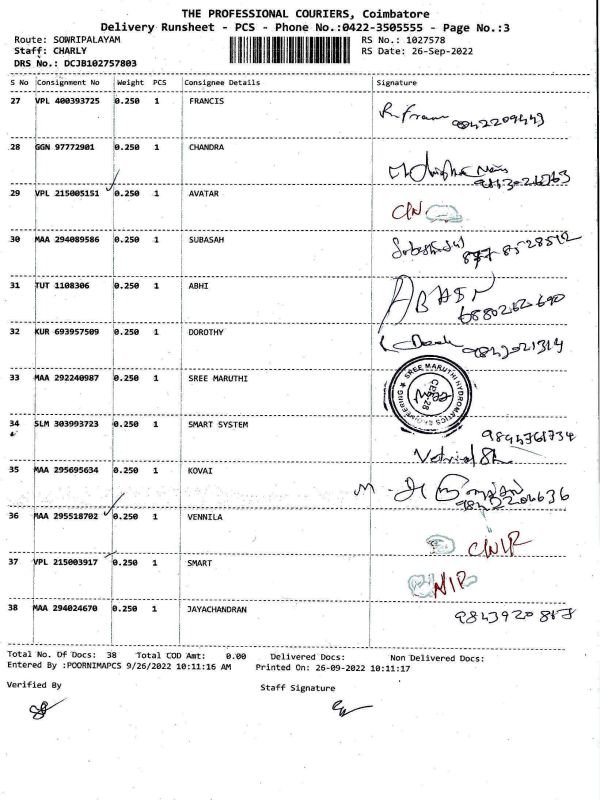 THE PROFESSIONAL COURIERS, Coimbatore
Delivery Runsheet - PCS - Phone No.:0422-3505555 - Page No.:3
Route: SOWRIPALAYAM RS No.: 1027578
Staff: CHARLY RS Date: 26-Sep-2022
DRS No.: DCJB102757803
S No Consignment No Weight PCS Consignee Details Signature
27 VPL 400393725 0.250 1 FRANCIS
9842209443
28 GGN 97772901 0.250 1 CHANDRA
29 VPL 215005151 0.250 1 AVATAR
30 MAA 294089586 0.250 1 SUBASAH
31 TUT 1108306 0.250 1 ABHI
6880262690
32 KUR 693957509 0.250 1 DOROTHY
9843021314
33 MAA 292240987 0.250 1 SREE MARUTHI
SREE MARUTHI HYDROMATICS ENGINEERING
34 SLM 303993723 0.250 1 SMART SYSTEM
9844761734
35 MAA 295695634 0.250 1 KOVAI
36 MAA 295518702 0.250 1 VENNILA
37 VPL 215003917 0.250 1 SMART
38 MAA 294024670 0.250 1 JAYACHANDRAN
Total No. Of Docs: 38 Total COD Amt: 0.00 Delivered Docs: Non Delivered Docs:
Entered By :POORNIMAPCS 9/26/2022 10:11:16 AM Printed On: 26-09-2022 10:11:17
Verified By Staff Signature